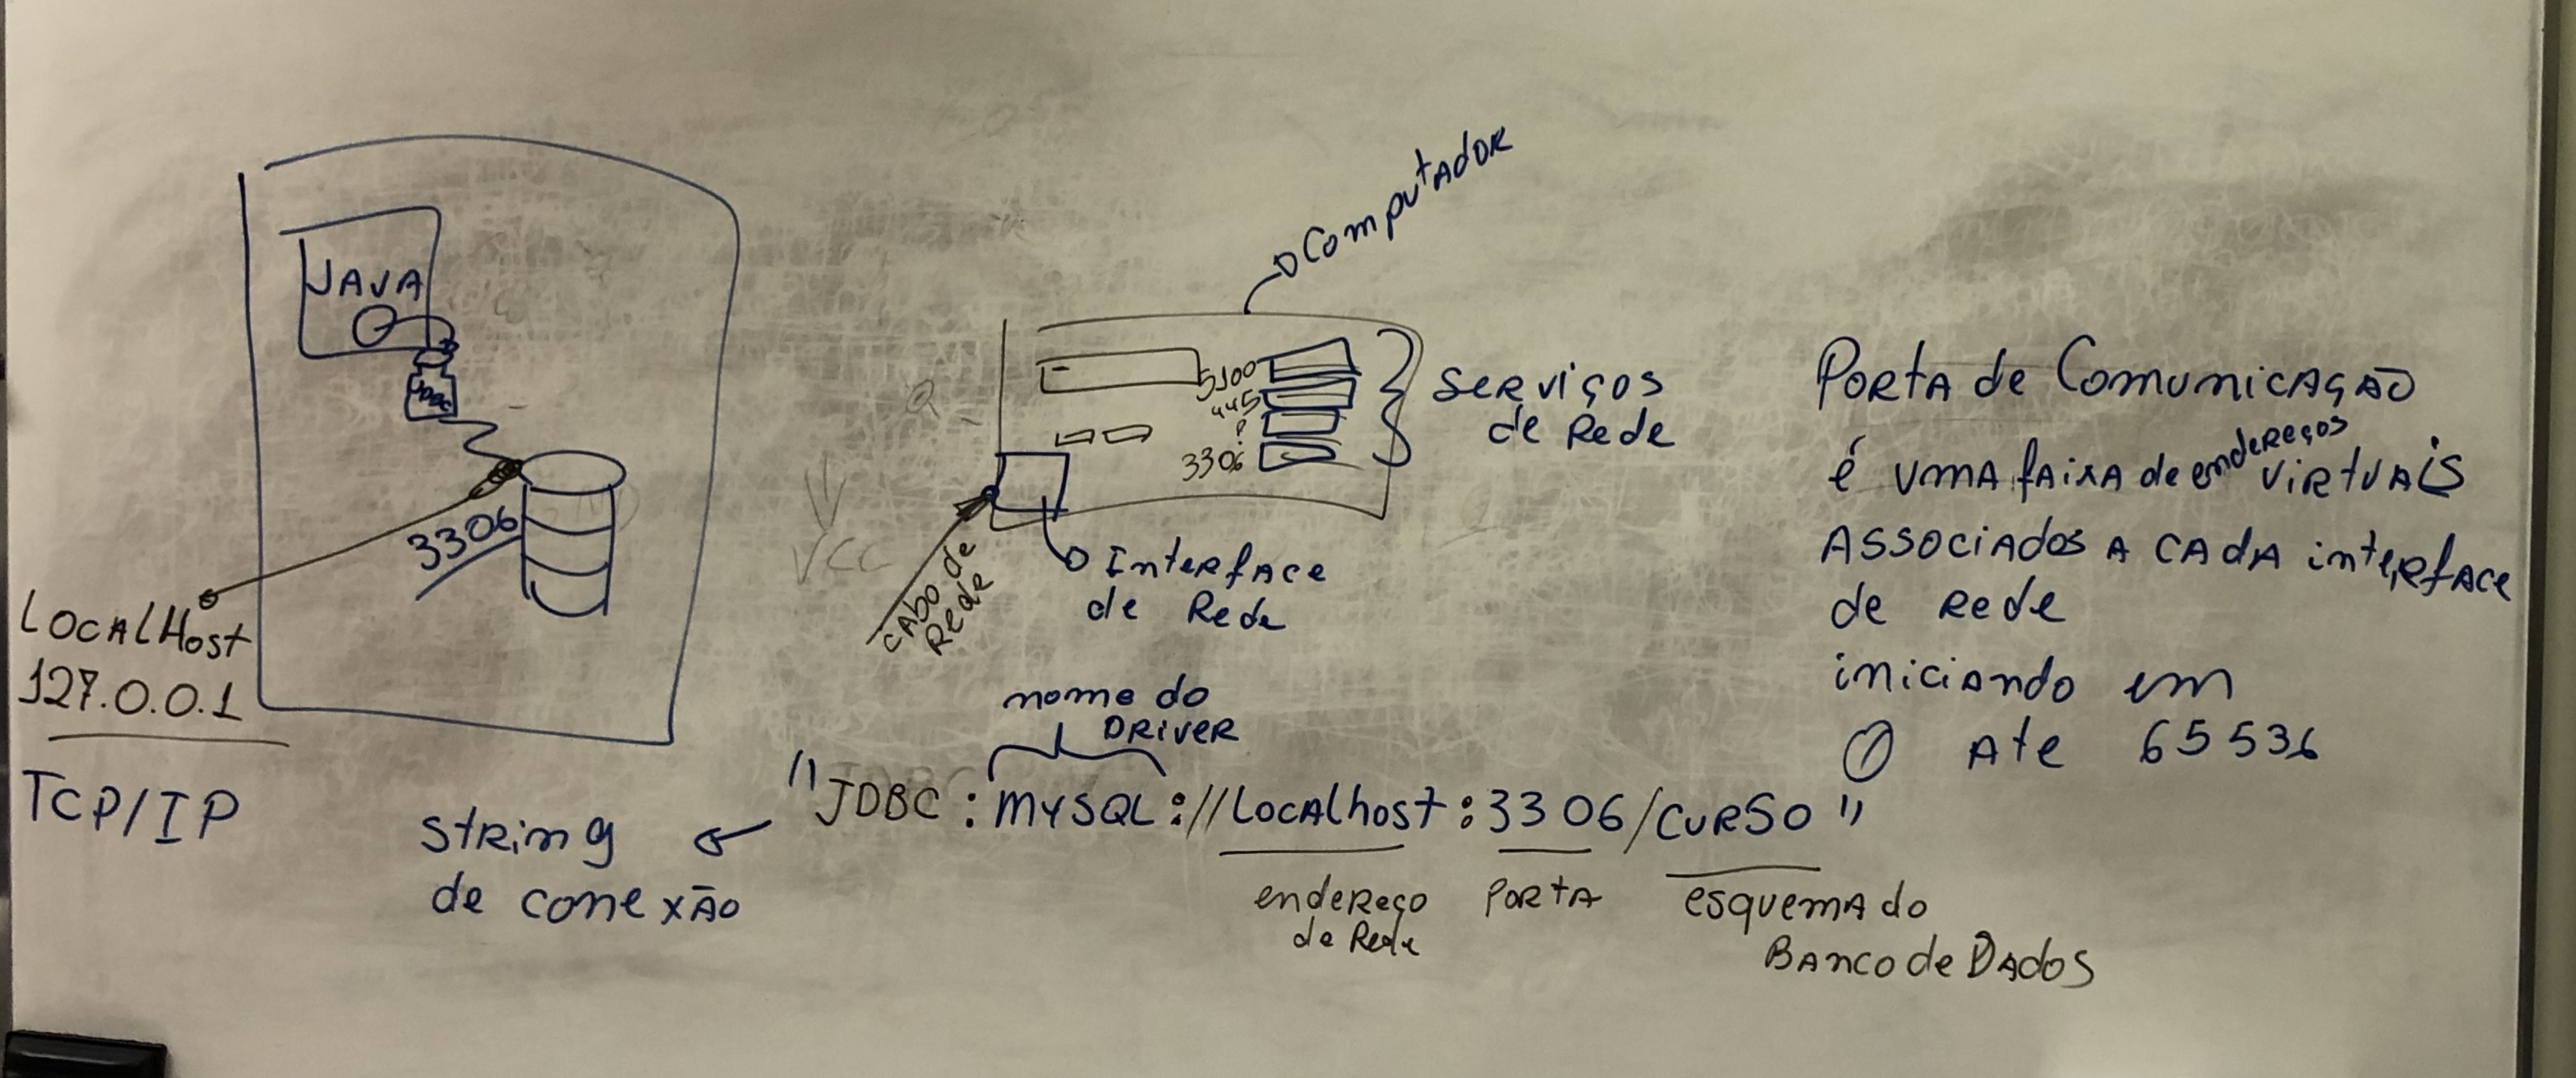 JAVA
JDBC
3306
LOCALHost
127.0.0.1
TCP/IP
Computador
5100
445
3306
Serviços
de Rede
Cabo de
Rede
Interface
de Rede
Porta de Comunicação
é uma faixa de endereços virtuais
Associados a cada interface
de Rede
iniciando em
0 Ate 65536
nome do
Driver
"JDBC:MYSQL://Localhost:3306/CURSO"
string
de conexão
endereço
de Rede
Porta
esquema do
Banco de Dados